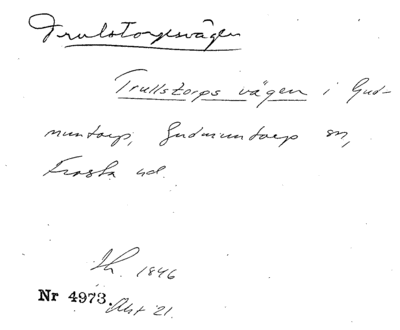 Trulstorpsvägen
Trullstorps vägen i Gud-
muntorp, Gudmuntorp sn,
Frosta hd.
Sk. 1846
Nr 4973. Akt 21.